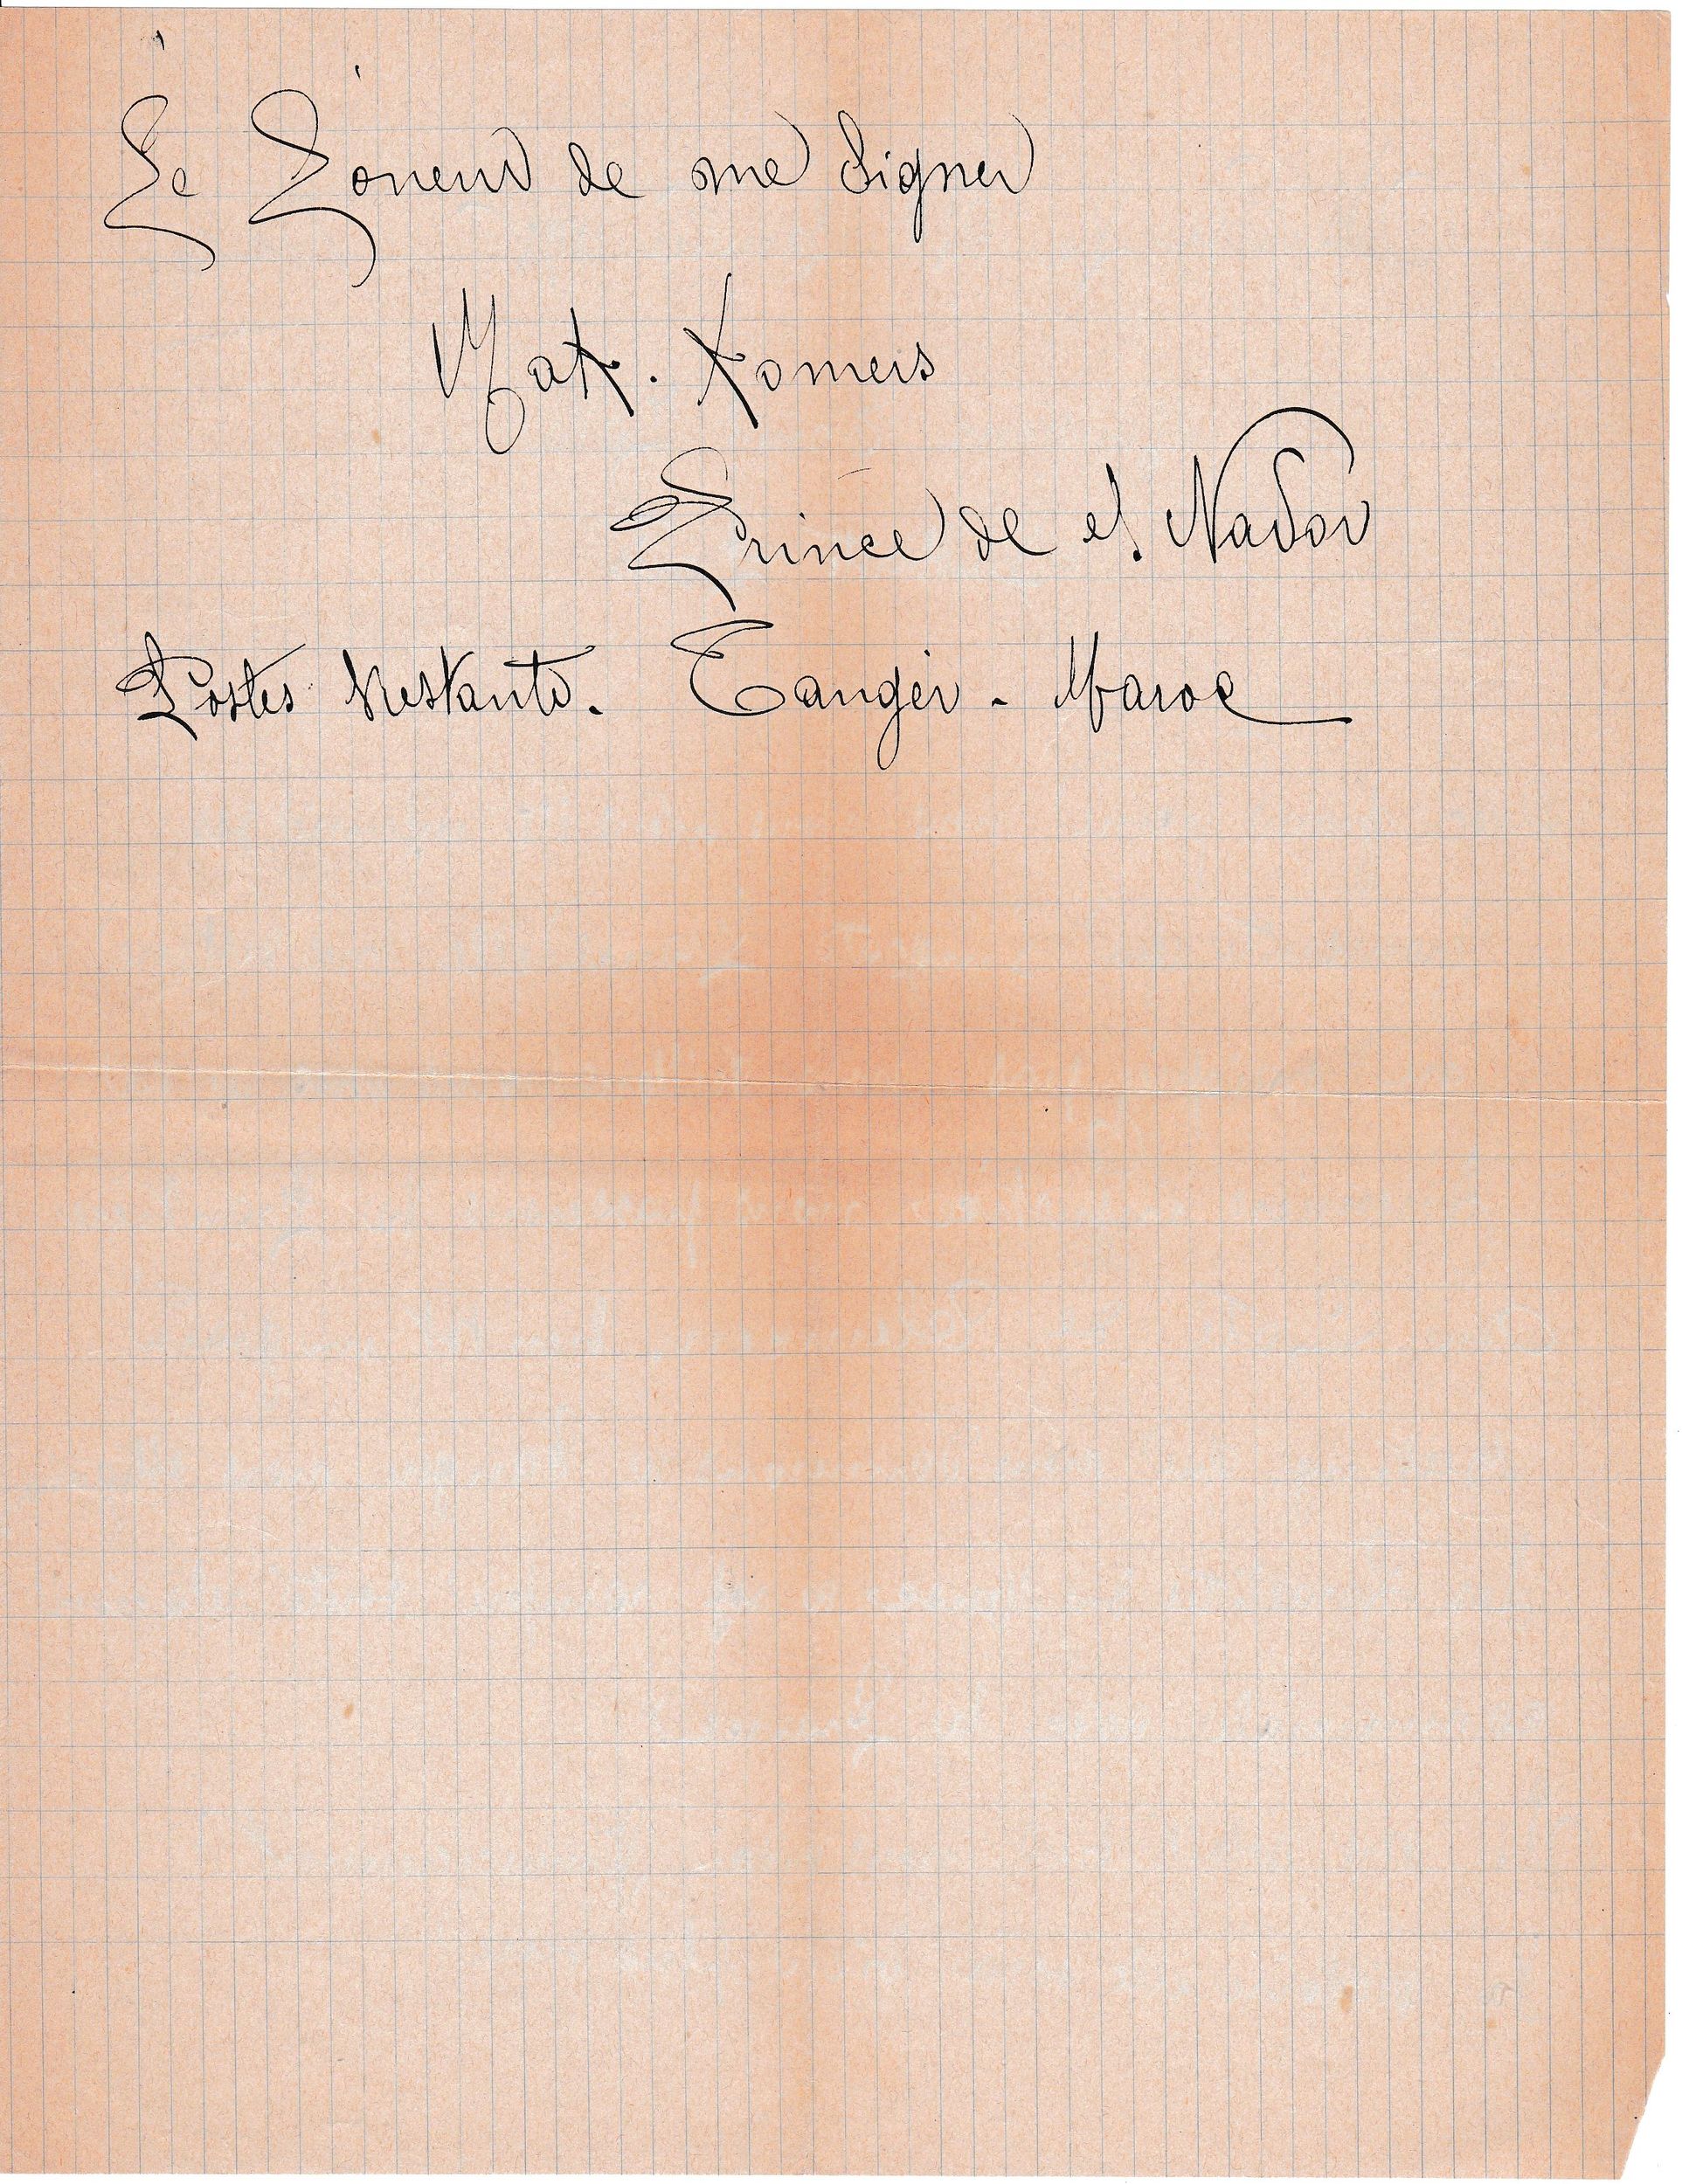 Le Loneur de me Signer
Max. Xomers
Prince de el Nador
Postes Restante. Tanger - Maroc